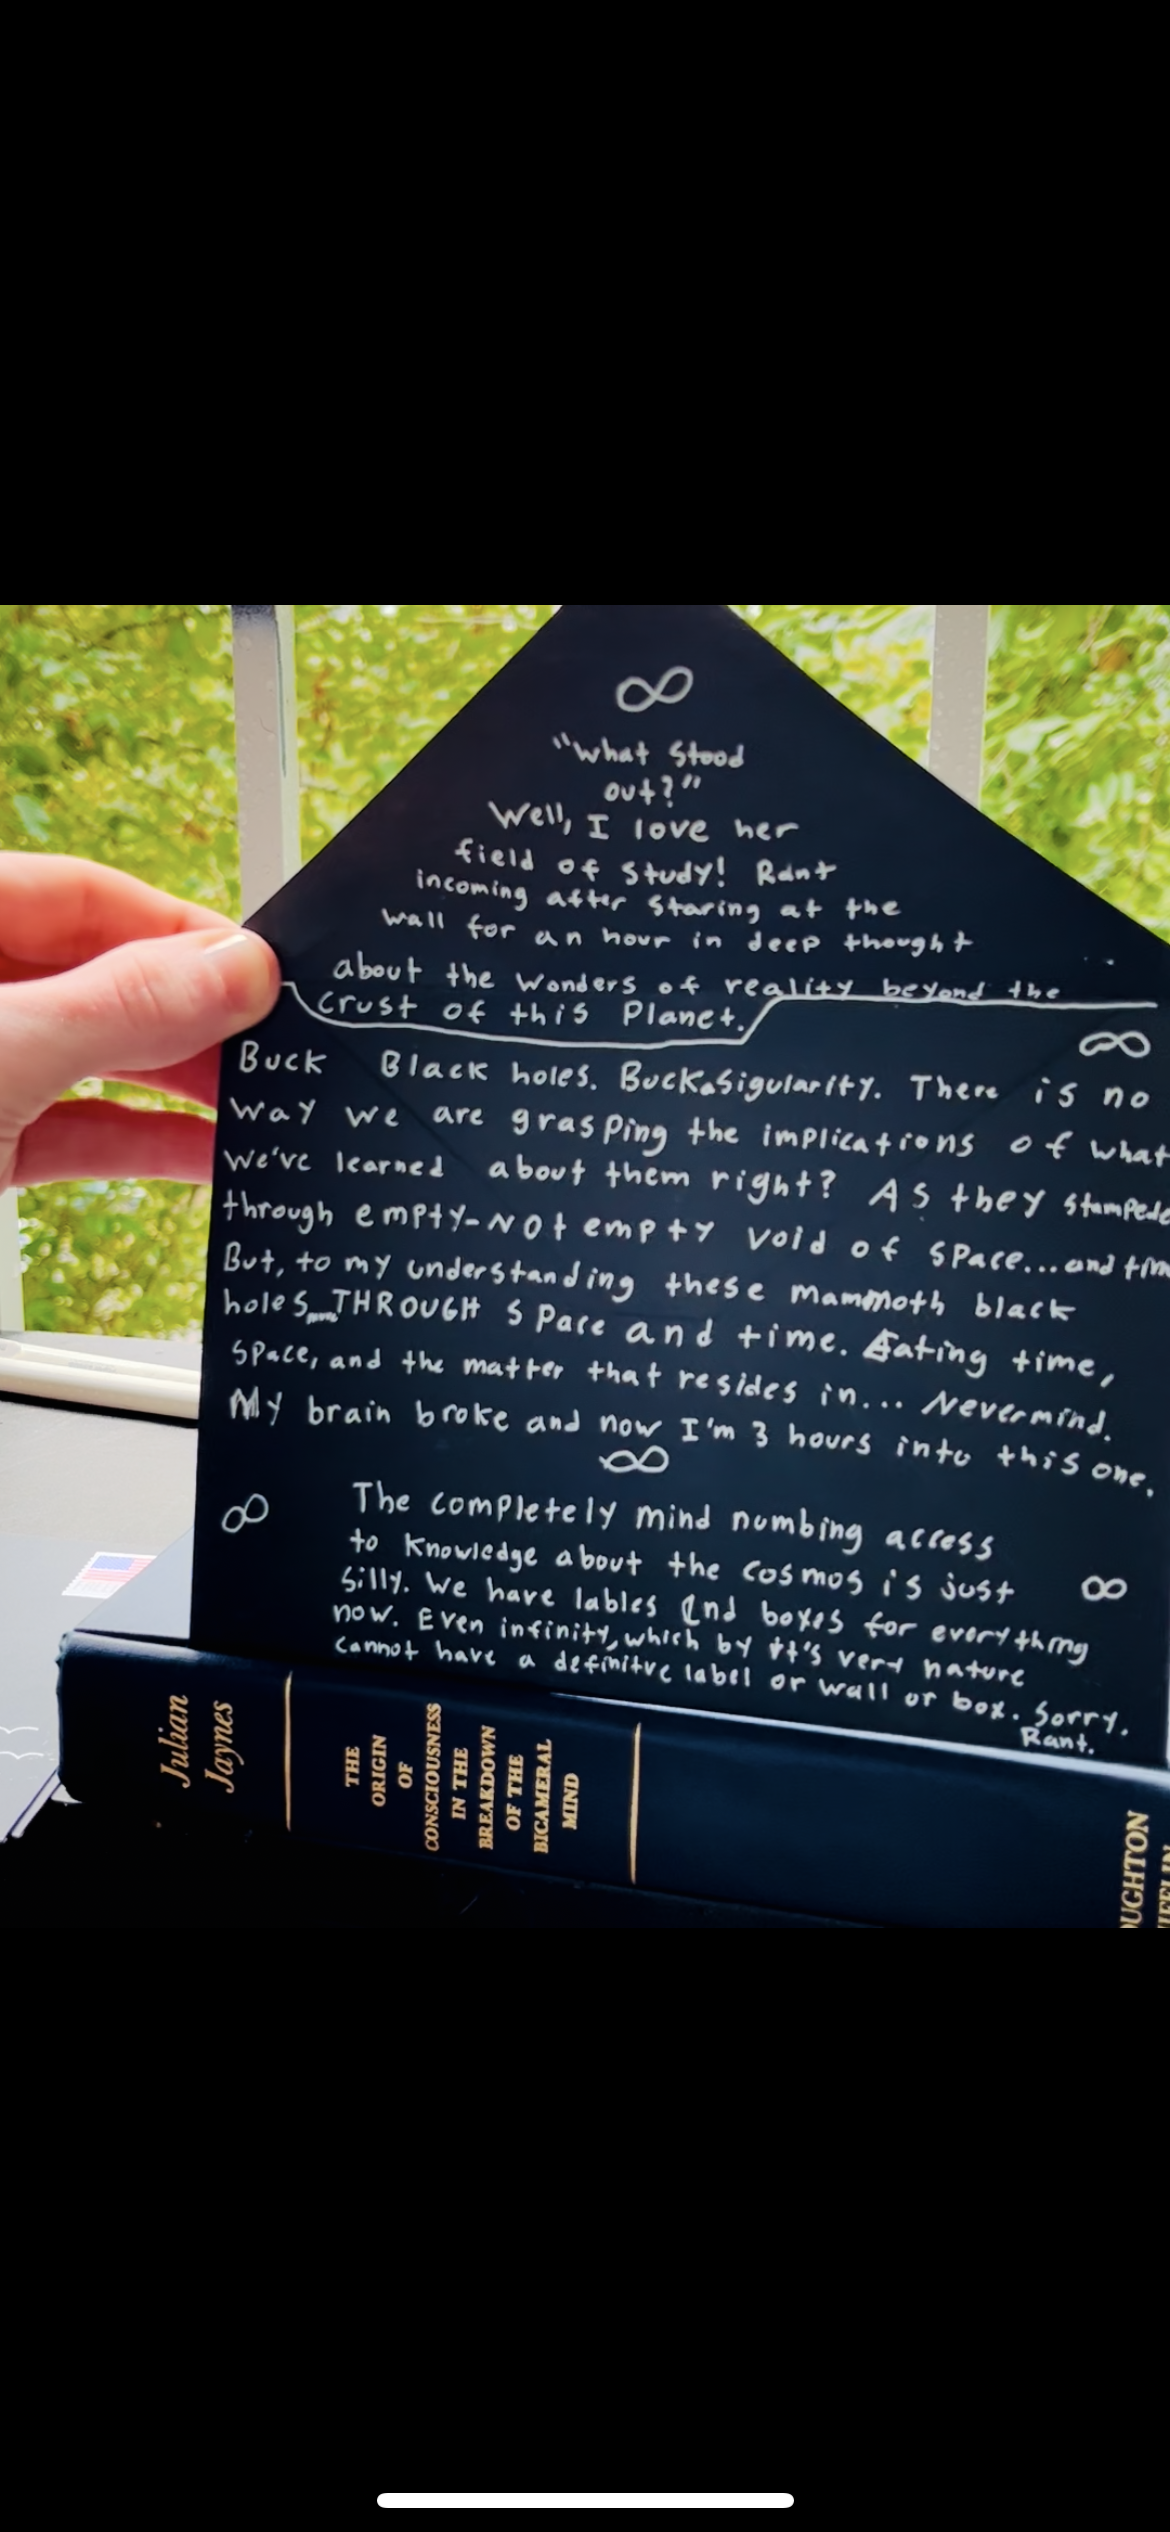 ∞
"What Stood
out?"
Well, I love her
field of study! Rant
incoming after staring at the
wall for an hour in deep thought
about the wonders of reality beyond the
crust of this Planet.
∞
Buck Black holes. Buck.Sigularity. There is no
way we are grasping the implications of what
we've learned about them right? As they stampede
through empty-Not empty void of space...and tim
But, to my understanding these mammoth black
holes THROUGH space and time. Eating time,
space, and the matter that resides in... Nevermind.
My brain broke and now I'm 3 hours into this one.
∞
∞
The completely mind numbing access
to knowledge about the cosmos is just
∞
silly. We have lables and boxes for everything
now. Even infinity, which by it's very nature
cannot have a definitve label or wall or box. Sorry.
Rant.
Julian
Jaynes
THE
ORIGIN
OF
CONSCIOUSNESS
IN THE
BREAKDOWN
OF THE
BICAMERAL
MIND
OUGHTON
IFFLIN